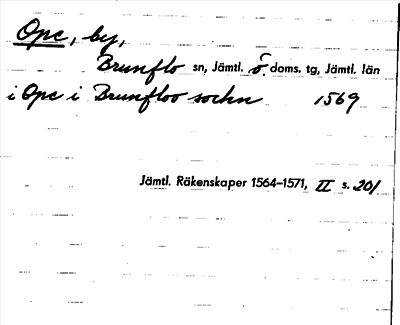 Ope, by,
Brunflo sn, Jämtl. ö. doms. tg, Jämtl. län
i Ope i Brunfloo sochn 1569
Jämtl. Räkenskaper 1564–1571, II s. 201